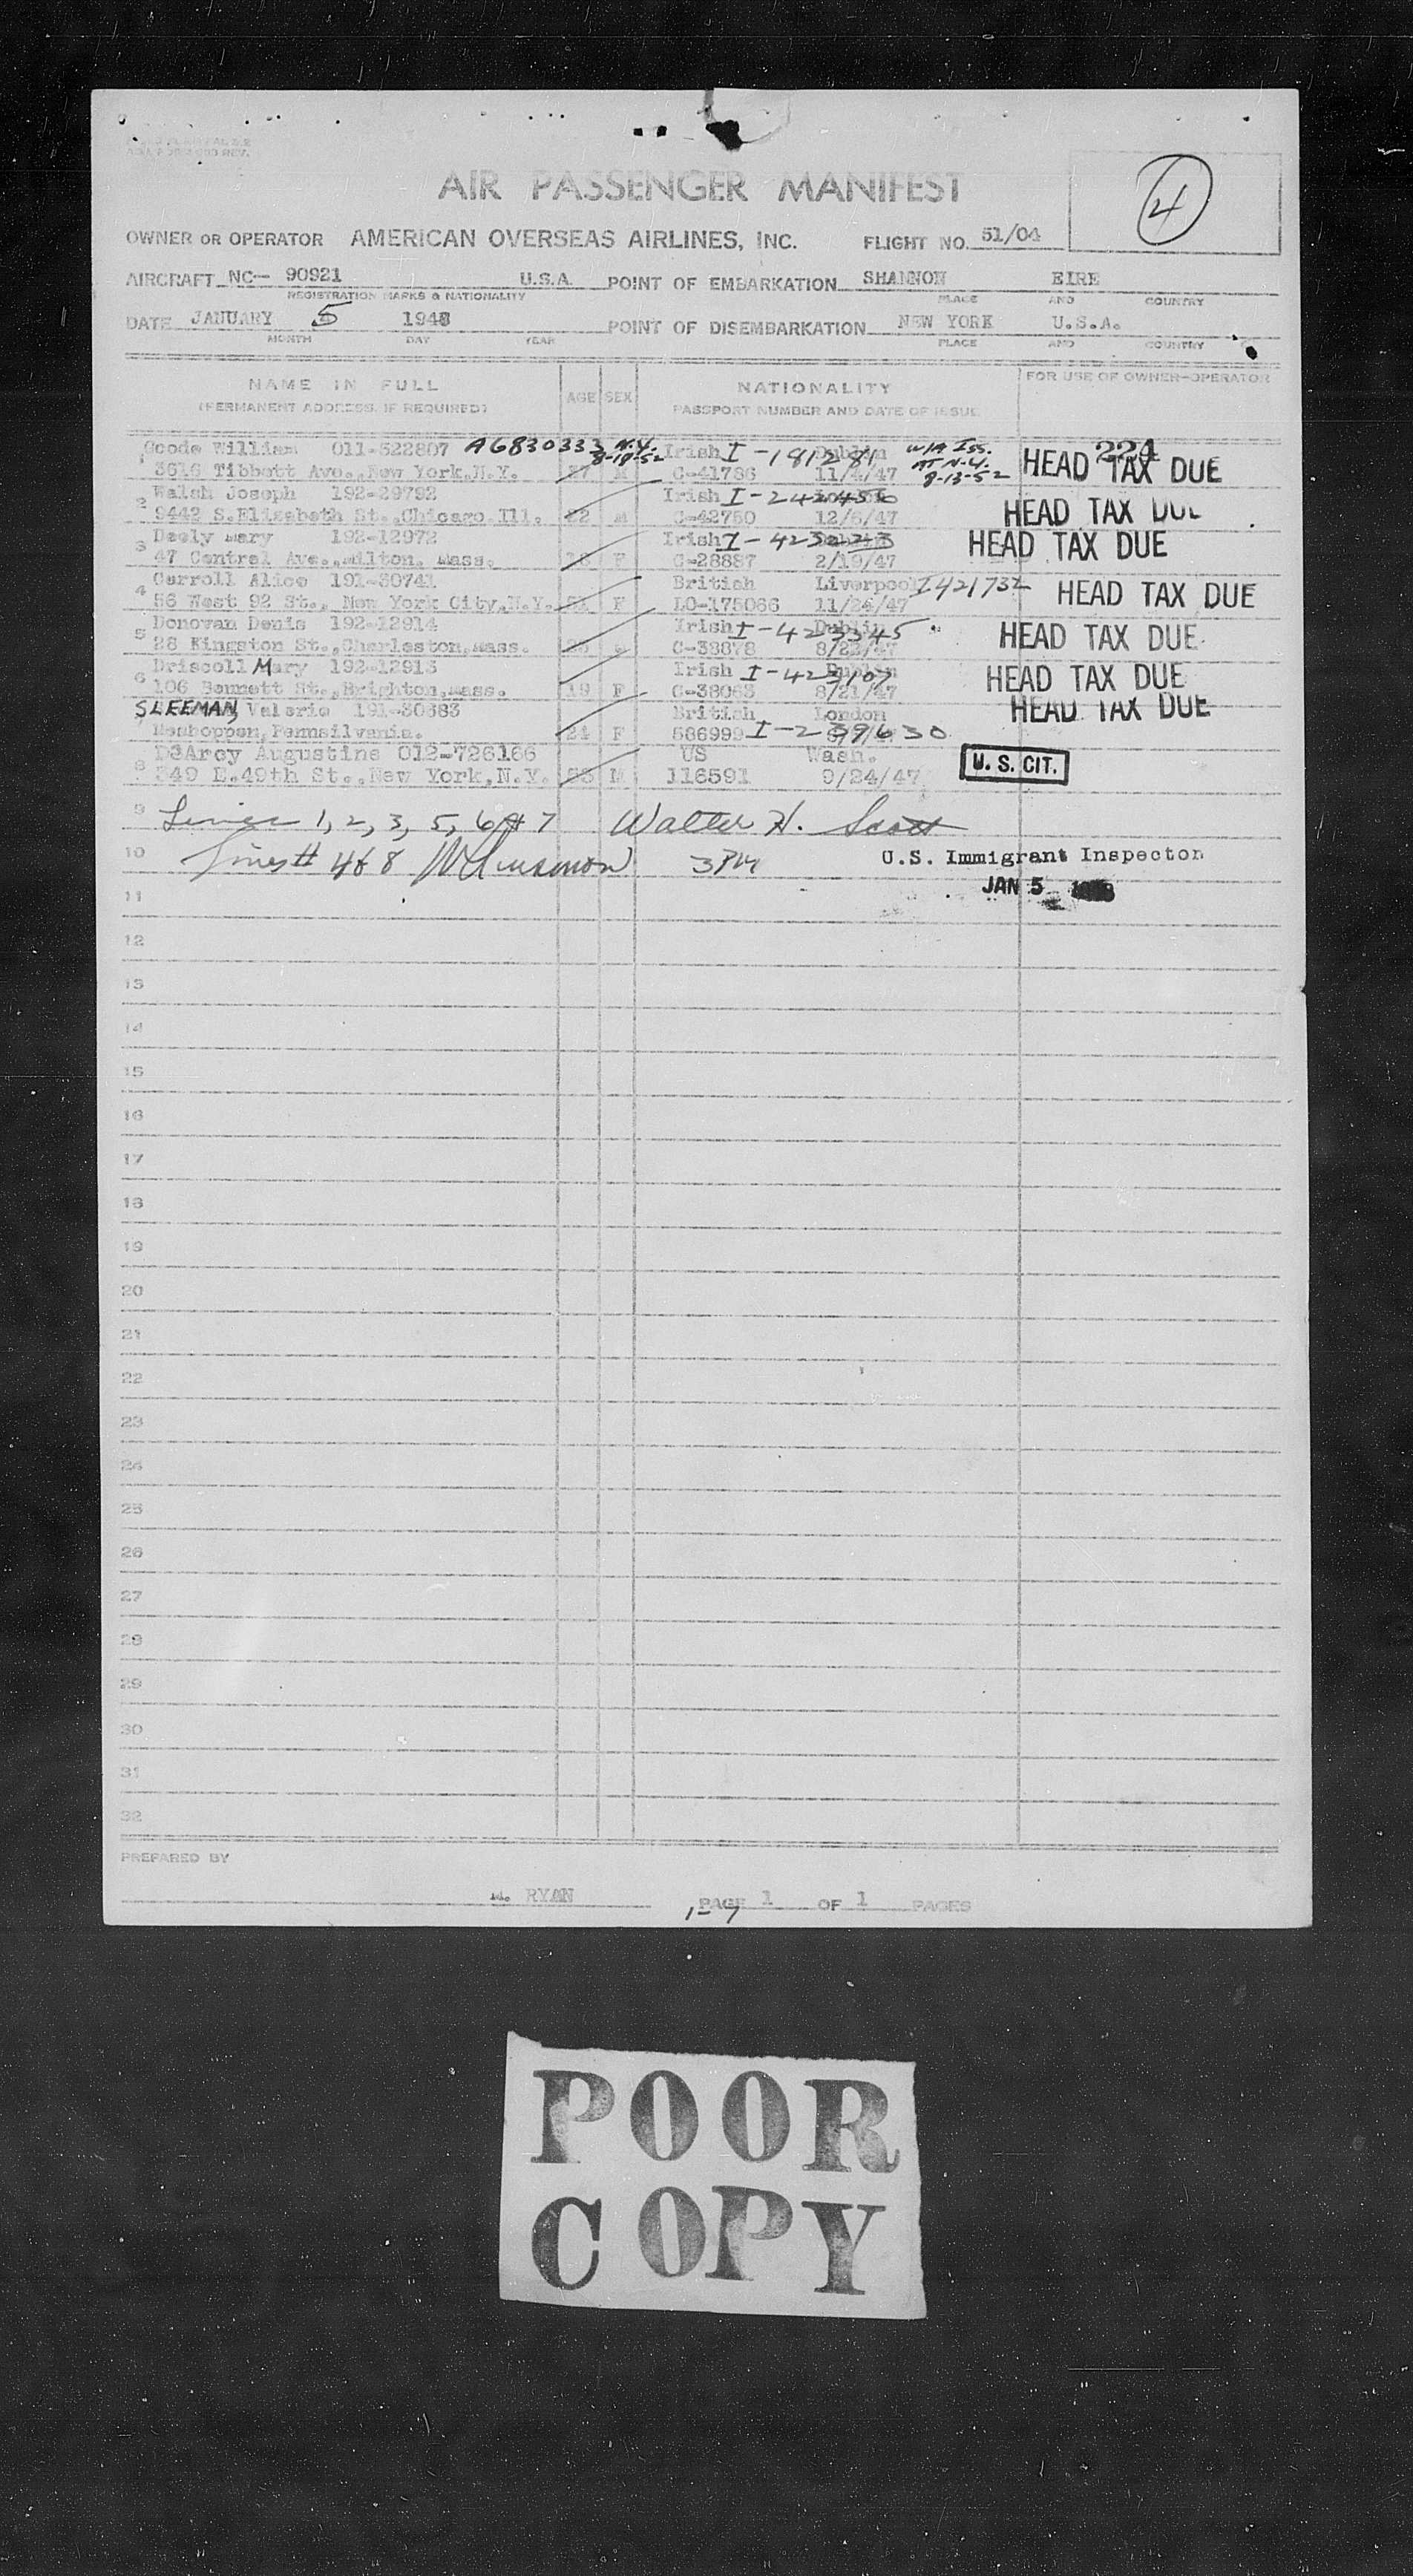 AIR PASSENGER MANIFEST
4
OWNER OR OPERATOR AMERICAN OVERSEAS AIRLINES, INC. FLIGHT NO. 51/04
AIRCRAFT NC- 90921 U.S.A. POINT OF EMBARKATION SHANNON EIRE
REGISTRATION MARKS & NATIONALITY PLACE AND COUNTRY
DATE JANUARY 5 1948 POINT OF DISEMBARKATION NEW YORK U.S.A.
MONTH DAY YEAR PLACE AND COUNTRY
NAME IN FULL AGE SEX NATIONALITY FOR USE OF OWNER-OPERATOR
(PERMANENT ADDRESS, IF REQUIRED) PASSPORT NUMBER AND DATE OF ISSUE
1 Goode William 011-522807 A6830333 N.Y. 8-18-52 Irish I-181281 Dublin W/A Iss. 224
3616 Tibbett Ave., New York, N.Y. M C-41786 11/4/47 AT N.Y. 8-13-52 HEAD TAX DUE
2 Walsh Joseph 192-29792 Irish I-242456
9442 S.Elizabeth St., Chicago Ill. 22 M C-42750 12/5/47 HEAD TAX DUE
3 Deely Mary 192-12972 Irish I-4232 HEAD TAX DUE
47 Central Ave., Milton, Mass. 18 F C-28887 2/19/47
4 Carroll Alice 191-30741 British Liverpool I421732 HEAD TAX DUE
56 West 92 St., New York City, N.Y. 51 F LO-175066 11/24/47
5 Donovan Denis 192-12914 Irish I-423345 Dublin HEAD TAX DUE
28 Kingston St., Charleston, Mass. C-38878 8/23/47
6 Driscoll Mary 192-12913 Irish I-423107 Dublin HEAD TAX DUE
106 Bennett St., Brighton, Mass. 19 F C-38063 8/21/47
SLEEMAN, Valerie 191-30683 British London HEAD TAX DUE
Meshoppen, Pennsilvania. 24 F 586999 I-239630
8 D'Arcy Augustine 012-726166 US Wash. U. S. CIT.
349 E.49th St., New York, N.Y. M 116591 9/24/47
9 Lines 1, 2, 3, 5, 6 & 7 Walter H. Scott
10 Lines # 4 & 8 3PM U.S. Immigrant Inspector
11 JAN 5 1948
12
13
14
15
16
17
18
19
20
21
22
23
24
25
26
27
28
29
30
31
32
PREPARED BY
M. RYAN PAGE 1 OF 1 PAGES
1-7
POOR
COPY